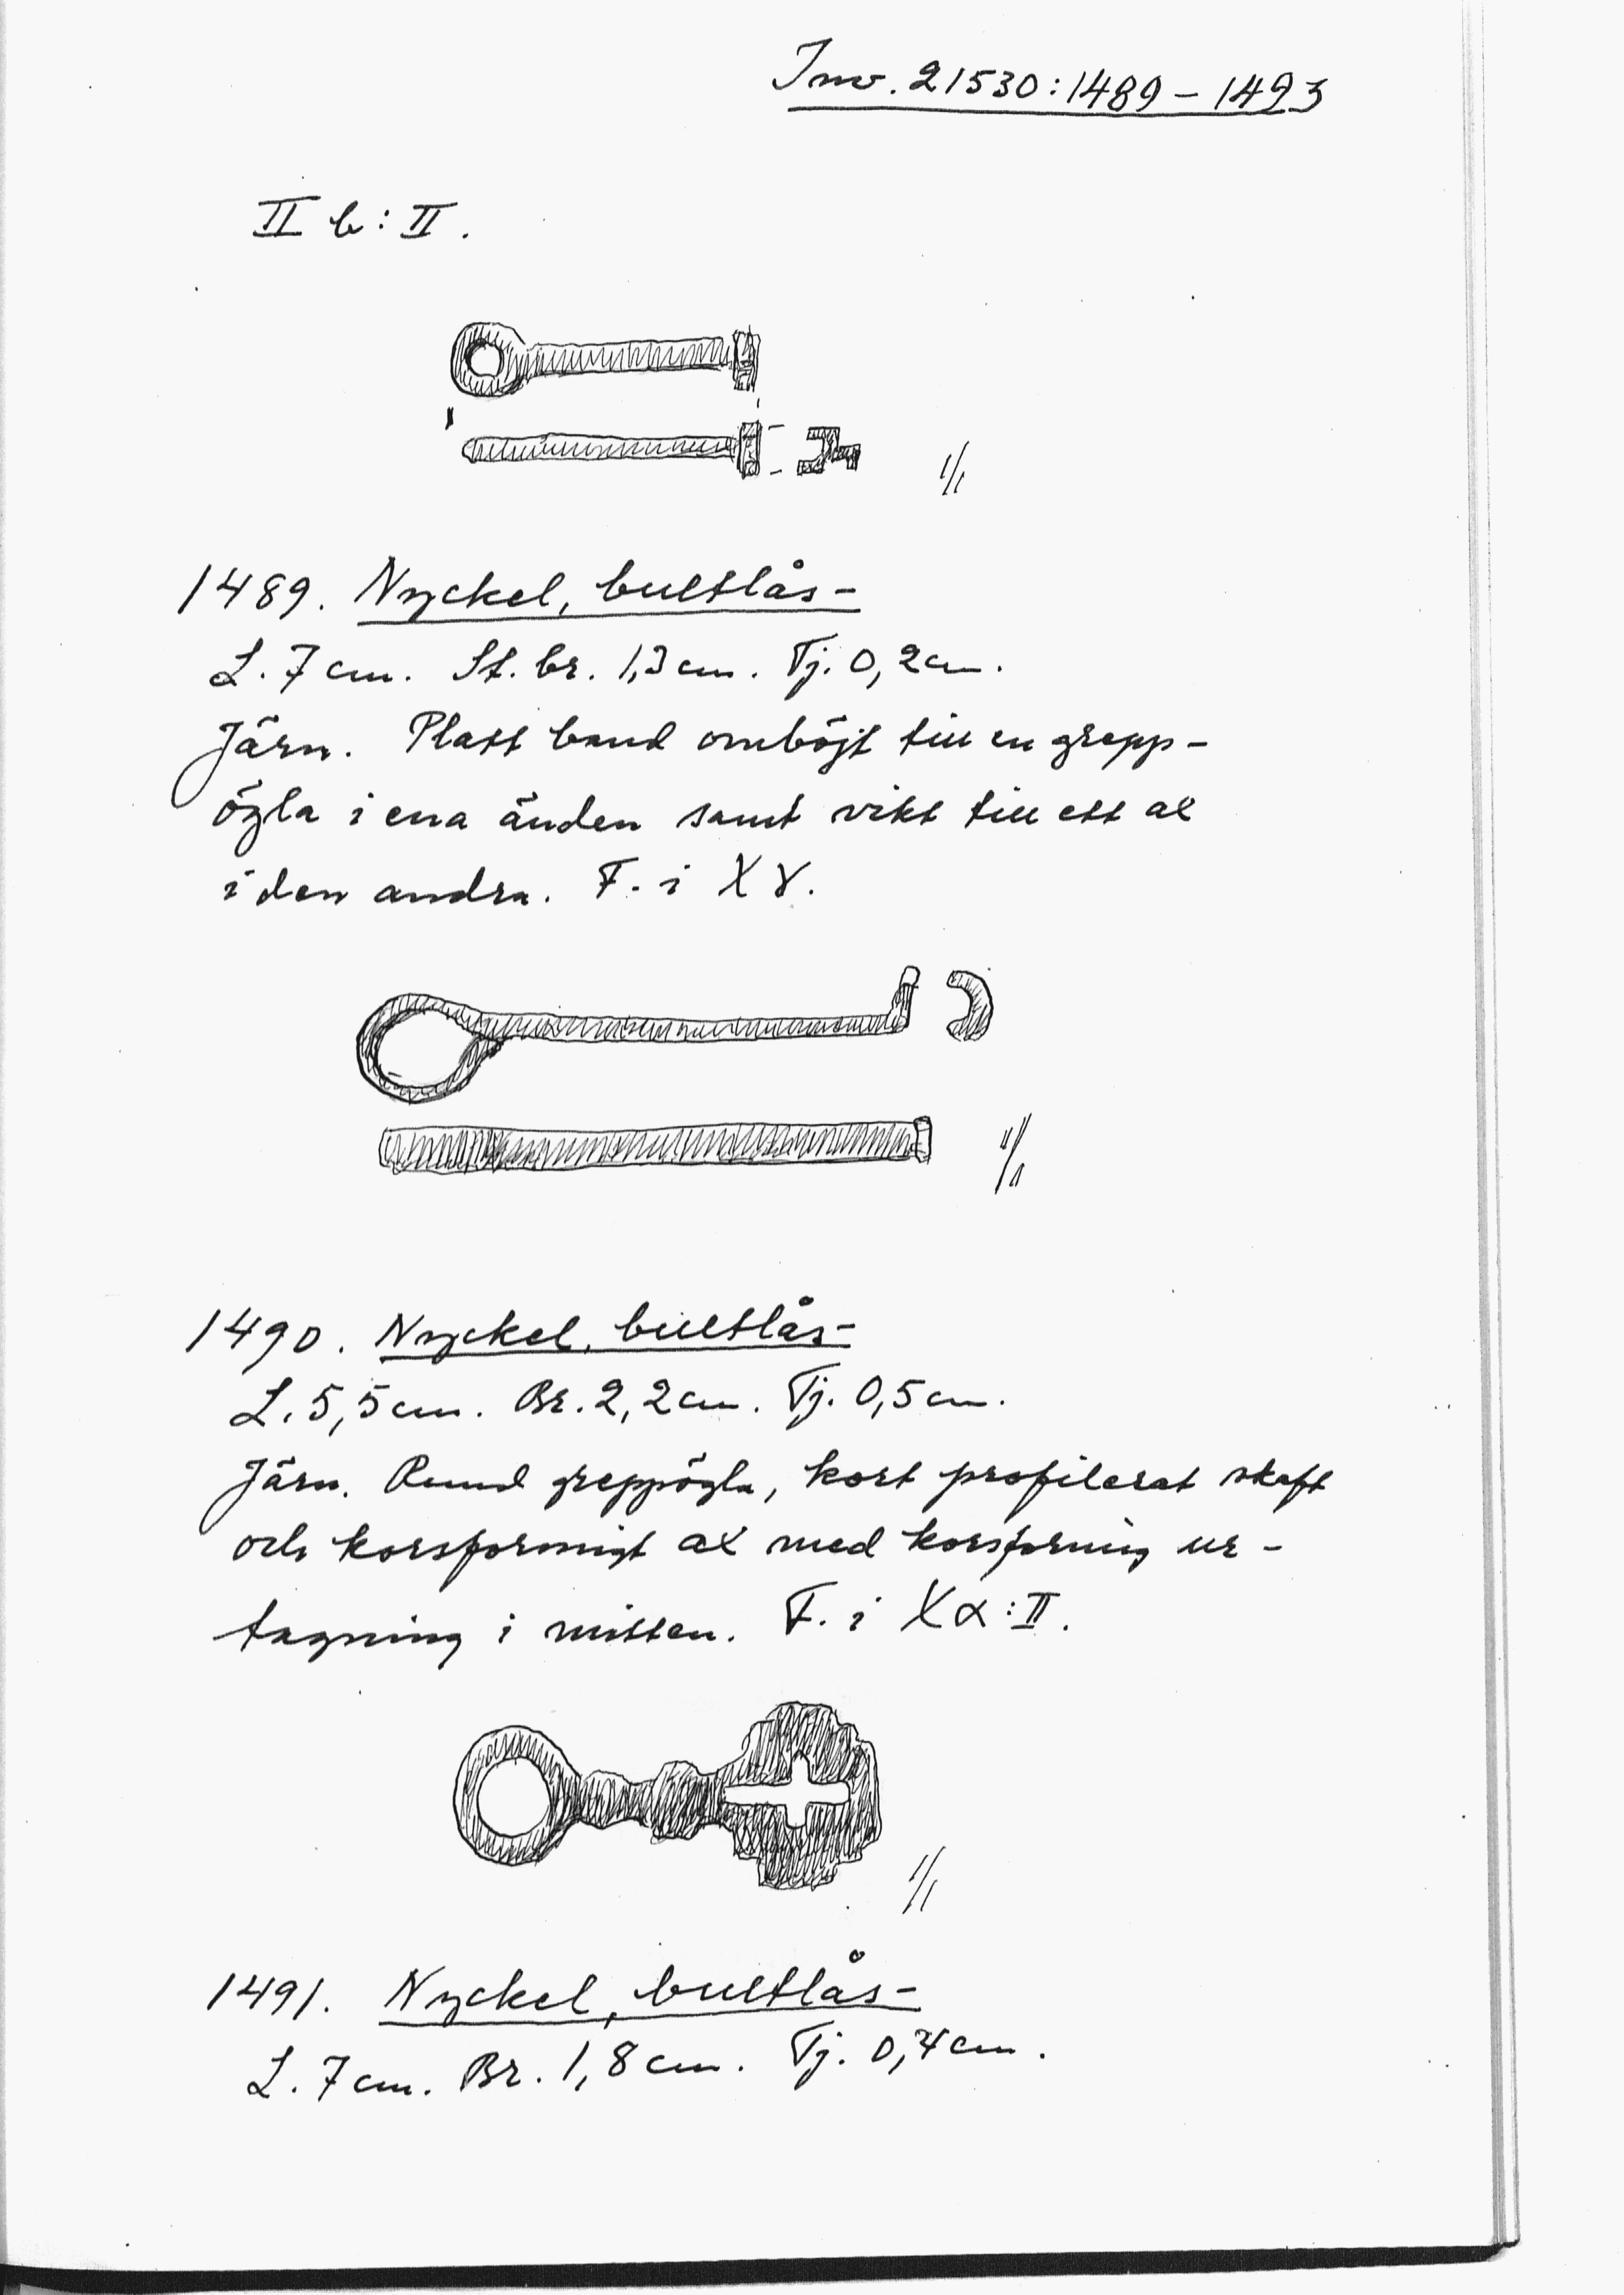 Inv. 21530:1489-1493
II b:II.
1/1
1489. Nyckel, bultlås-
L. 7 cm. St. br. 1,3 cm. Tj. 0,2 cm.
Järn. Platt band omböjt till en grepp-
ögla i ena änden samt vikt till ett ax
i den andra. F. i X γ.
1/1
1490. Nyckel, bultlås-
L. 5,5 cm. Br. 2,2 cm. Tj. 0,5 cm.
Järn. Rund greppögla, kort profilerat skaft
och korsformigt ax med korsformig ur-
tagning i mitten. F. i X α:II.
1/1
1491. Nyckel, bultlås-
L. 7 cm. Br. 1,8 cm. Tj. 0,4 cm.